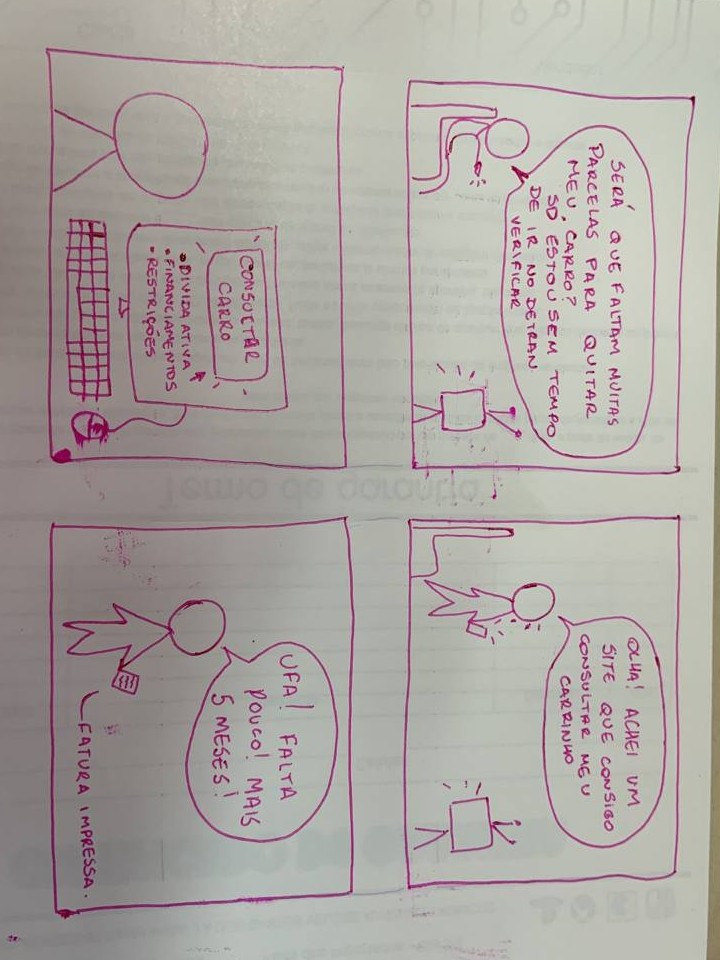 SERÁ QUE FALTAM MUITAS
PARCELAS PARA QUITAR
MEU CARRO?
SÓ ESTOU SEM TEMPO
DE IR NO DETRAN
VERIFICAR
OLHA! ACHEI UM
SITE QUE CONSIGO
CONSULTAR MEU
CARRINHO
CONSULTAR
CARRO
• DIVIDA ATIVA
• FINANCIAMENTOS
• RESTRIÇÕES
UFA! FALTA
POUCO! MAIS
5 MESES!
FATURA IMPRESSA.
Termo de garantia